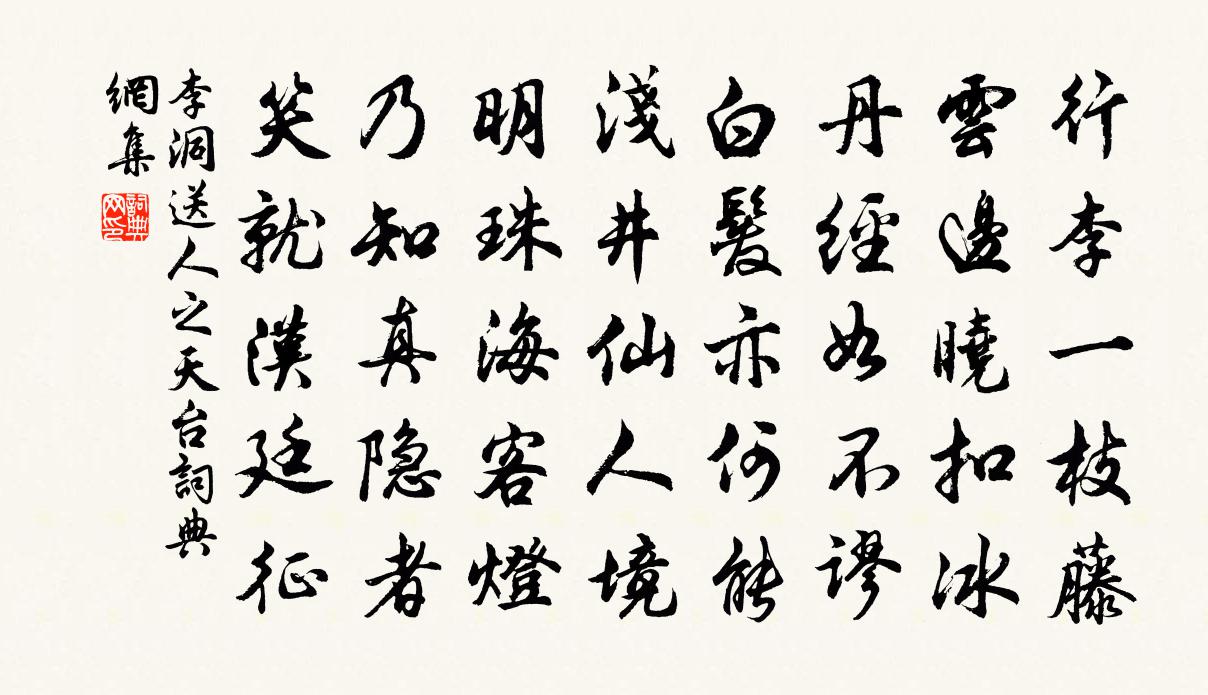 行李一枝藤
雲邊曉扣冰
丹經如不謬
白髮亦何能
淺井仙人境
明珠海客燈
乃知真隐者
笑就漢廷征
李洞送人之天台詞典
網集
詞典
网印